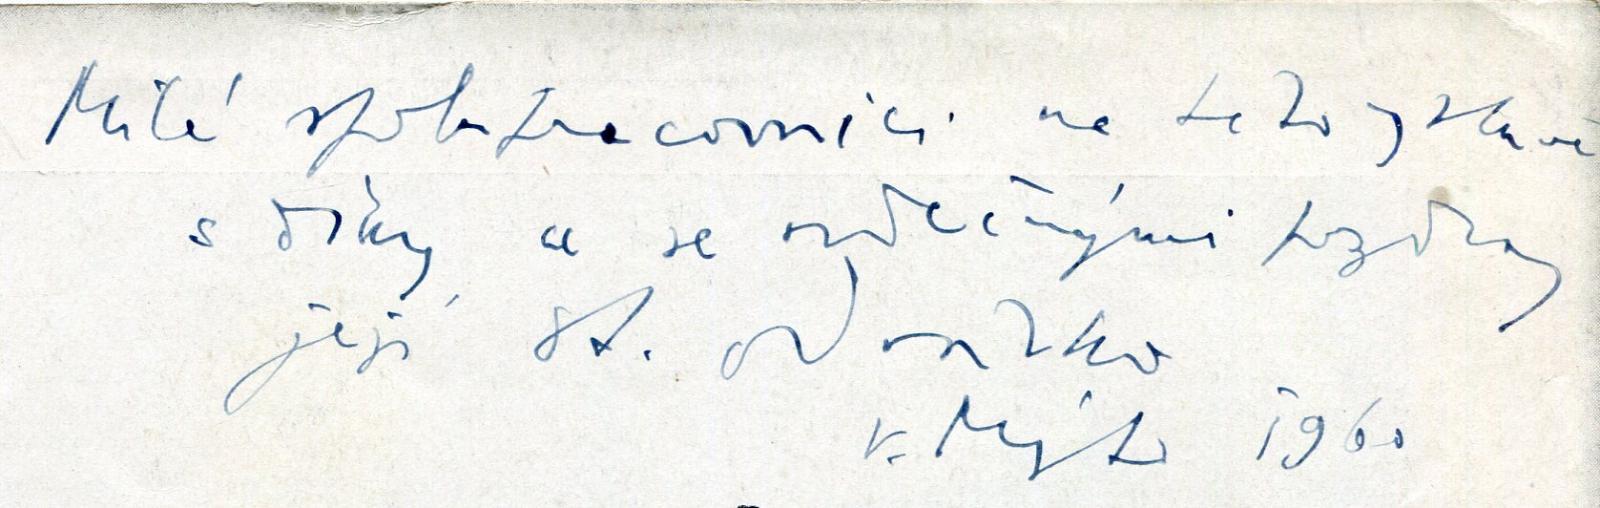 Milé spolupracovnici na této výstavě
s díky a se srdečnými pozdravy
její St.
V. Mýto 1960